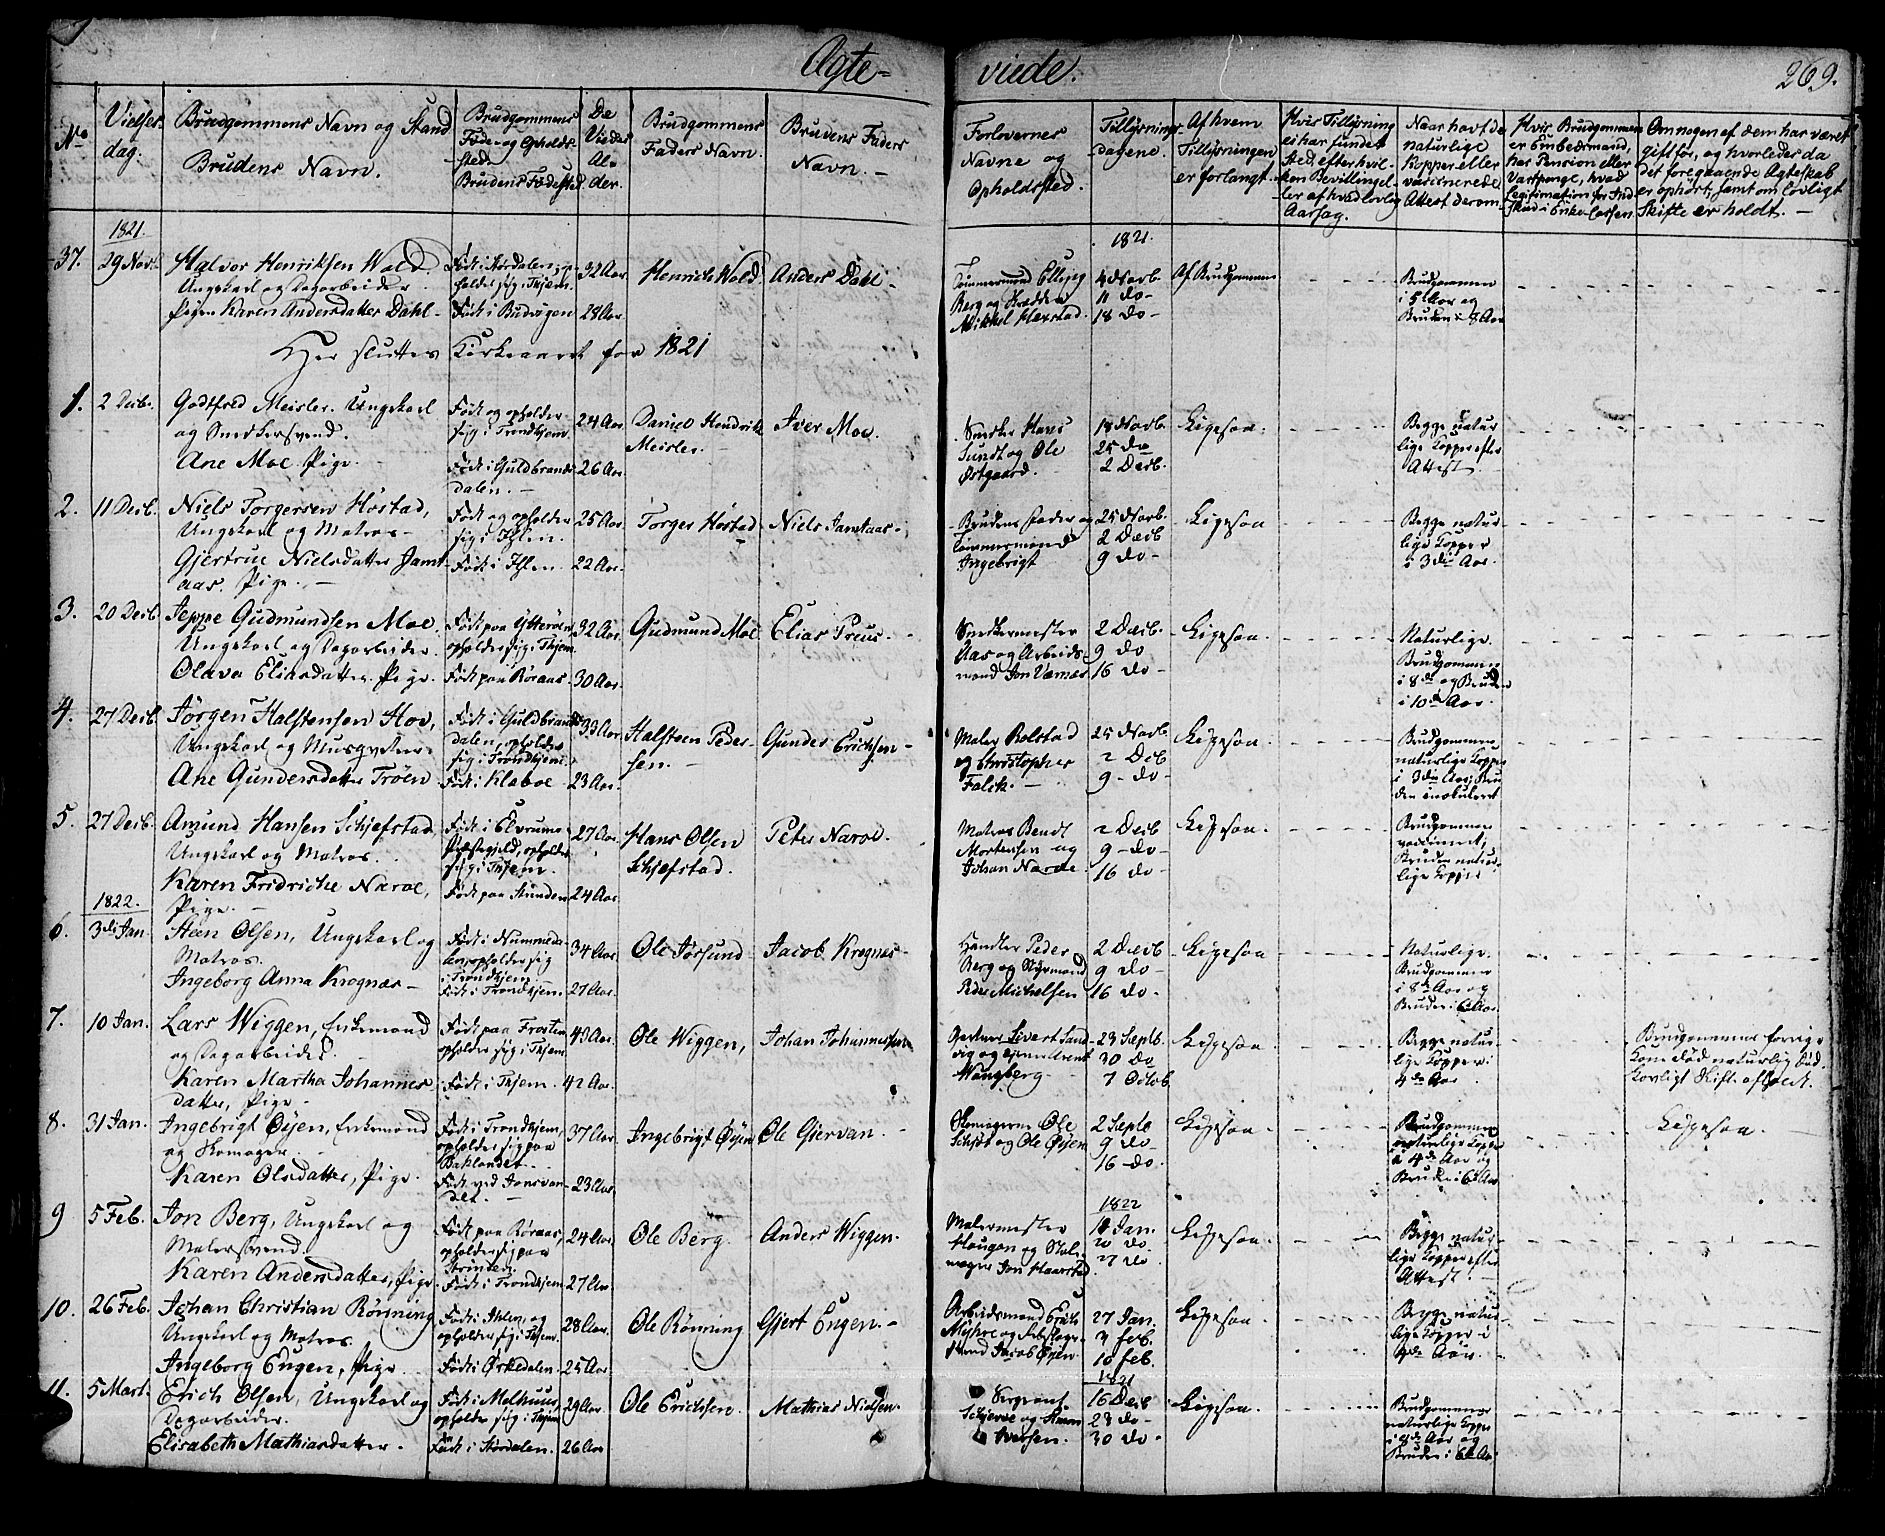 Ægte-
viede.
269.
No
Vielses
dag.
Brudgommens Navn og Stand
Brudens Navn.
Brudgommens
Føde- og Opholds-
sted.
Brudens Fødested
De
Viedes
Al-
der.
Brudgommens
Faders Navn.
Brudens Faders
Navn.
Forlovernes
Navne og
Opholdsted.
Tillysnings-
dagene.
Af hvem
Tillysningen
er forlangt.
Hvis Tillysning
ei har fundet
sted efter hvil-
ken Bevilling el-
ler af hvad lovlig
Aarsag.
Naar havt de
naturlige
Kopper eller
vaccinerede
Attest derom
Hvis Brudgommen
er Embedsmand,
har Pension eller
Vartpenge, hvad
Legitimation for Ind-
skud i Enke-Cassen
Om nogen af dem har været
gift før, og hvorledes da
det foregaaende Ægteskab
er ophørt, samt om lovligt
Skifte er holdt.
1821.
37. 29 Novb.
Halvor Henriksen Wold.
Ungkarl og Dagarbeider
Pigen Karen Andersdatter Dahl
Født i Størdalen, op-
holder sig i Thjem.
Født i Budvigen
32 Aar
28 Aar
Henrich Wold
Anders Dahl
Tømmermand Elling
Berg og
Mikkel Harstad.
1821.
4 Novb
11 do
18 do
Af Brudgommen
Brudgommen
i 5 Aar og
Bruden i 8 Aar
Her sluttes Kirkeaaret for 1821
1. 2 Decb.
Godtfred Meisler. Ungkarl
og Snedkersvend.
Ane Moe Pige.
Født og opholder
sig i Trondhjem
Født i Guldbrands-
dalen.
24 Aar
26 Aar
Daniel Hendrik
Meisler.
Iver Moe.
Snedker Hans
Sundt og Ole
Østgaard.
18 Novb.
25 do
2 Decb.
Ligesaa.
Begge natur
lige Kopper efter
Attest
2. 11 Decb.
Niels Torgersen Høstad,
Ungkarl og Matros
Gjertrue Nielsdatter Jamt-
aas. Pige.
Født og opholder
sig i Ihlen.
Født i Ihlen.
25 Aar
22 Aar.
Torger Høstad
Niels Jamtaas.
Brudens Fader og
Tømmermand
Ingebrigt
25 Novb.
2 Decb
9 do
Ligesaa
Begge natur-
lige Kopper
i 3die Aar.
3. 20 Decb.
Jeppe Gudmundsen Moe.
Ungkarl og Dagarbeider.
Olava Eliasdatter. Pige.
Født paa Ytterøen
opholder sig i Thjem
Født paa Røraas.
32 Aar.
30 Aar.
Gudmund Moe
Elias Preus.
Snedkermester
Aas og Arbeids-
mand Jon Værnes
2 Decb.
9 do
16 do
Ligesaa.
Naturlige.
Brudgommen
i 8de og Bruden
i 10de Aar.
4. 27 Decb.
Jørgen Halstensen Hov,
Ungkarl og Musqveteer
Ane Gundersdatter Trøen
Født i Guldbrands-
dalen, opholder
sig i Trondhjem
Født i Klæboe
33 Aar
23 Aar.
Halsteen Peder-
sen.
Gunder Erichsen
Maler Rolstad
og Christopher
Falck.
25 Novb.
2 Decb
9 do
Ligesaa.
Brudgommen
naturlige Kopper
i 3die Aar, Bru
den inokuleret
5. 27 Decb.
Amund Hansen Schjefstad
Ungkarl og Matros.
Karen Fridriche Naroe,
Pige.
Født i Elverums
Præstegjeld, opholder
sig i Thjem.
Født paa Strinden
27 Aar.
24 Aar
Hans Olsen
Schjefstad.
Peter Naroe.
Matros Bendt
Mortensen og
Johan Naroe.
2 Decb
9 do
16 do
Ligesaa.
Brudgommen
vaccineret,
Bruden natur-
lige Kopper
1822.
6. 3die Jan
Steen Olsen, Ungkarl og
Matros.
Ingeborg Anna Krognæs
Født i Nummeda-
len, opholder sig
i Trondhjem
Født i Trondhjem
34 Aar
27 Aar.
Ole Jørsund
Jacob Krognæs
Handler Peder
Berg og Styrmand
Peder Michelsen
2 Decb
9 do
16 do
Ligesaa
Naturlige.
Brudgommen
i 8de Aar og
Bruden i 6te Aar.
7. 10 Jan.
Lars Wiggen, Enkemand
og Dagarbeider.
Karen Martha Johannes
datter, Pige.
Født paa Frosten
opholder sig i Thjem
Født i Thjem.
43 Aar.
42 Aar.
Ole Wiggen,
Johan Johannessen
Gartner Sivert Sand
vig og Arent
Wangberg
23 Septb.
30 do
7 Octob
Ligesaa.
Begge natur-
lige Kopper i
4de Aar
Brudgommens forrige
Kone død naturlig Død
Lovligt Skifte afholdt.
8. 31 Jan.
Ingebrigt Øyen, Enkemand
og Skomager.
Karen Olsdatter, Pige.
Født i Trondhjem,
opholder sig paa
Baklandet
Født ved Jonsvan-
det.
37 Aar
23 Aar.
Ingebrigt Øyen
Ole Gjervan.
Skomagerne Ole
Schjet og Ole Øyen
2 Septb
9 do
16 do.
Ligesaa.
Brudgommen
naturlige Kopper
i 4de Aar og
Bruden i 6te Aar
Ligesaa.
9 5 Feb.
Jon Berg, Ungkarl og
Malersvend.
Karen Andersdatter, Pige
Født paa Røraas,
opholder sig paa
Strinden
Født i Trondhjem
24 Aar
27 Aar.
Ole Berg.
Anders Wiggen.
Malermester
Haugan og
Jon Haarstad
1822
18 Jan.
20 do
27 do
Ligesaa.
Begge natur-
lige Kopper efter
Attest.
10. 26 Feb.
Johan Christian Rönning
Ungkarl og Matros
Ingeborg Engen, Pige
Født i Ihlen, og
opholder sig i Thjem.
Født i Ørkedalen
28 Aar
25 Aar
Ole Rönning
Gjert Engen.
Arbeidsmand Erik
Myhre og
Jacob Øyen.
27 Jan.
3 feb.
10 feb.
Ligesaa.
Begge natur-
lige Kopper i
Aar.
11. 5 Mart.
Erich Olsen, Ungkarl og
Dagarbeider.
Elisabeth Mathiasdatter.
Født i Melhuus,
opholder sig i Thjem
Født i Størdalen.
29 Aar
26 Aar
Ole Erichsen.
Mathias Nielsen.
Sergeant
Schjerve og
Iversen.
1821
16 Decb
23 do
30 do
Ligesaa.
Brudgommen
naturlige Kopper
Aar og
Bruden i 6te Aar